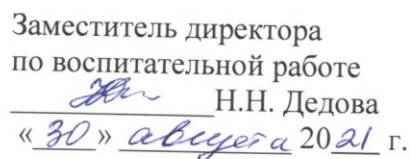 Заместитель директора
по воспитательной работе
Н.Н. Дедова
«30» августа 2021 г.